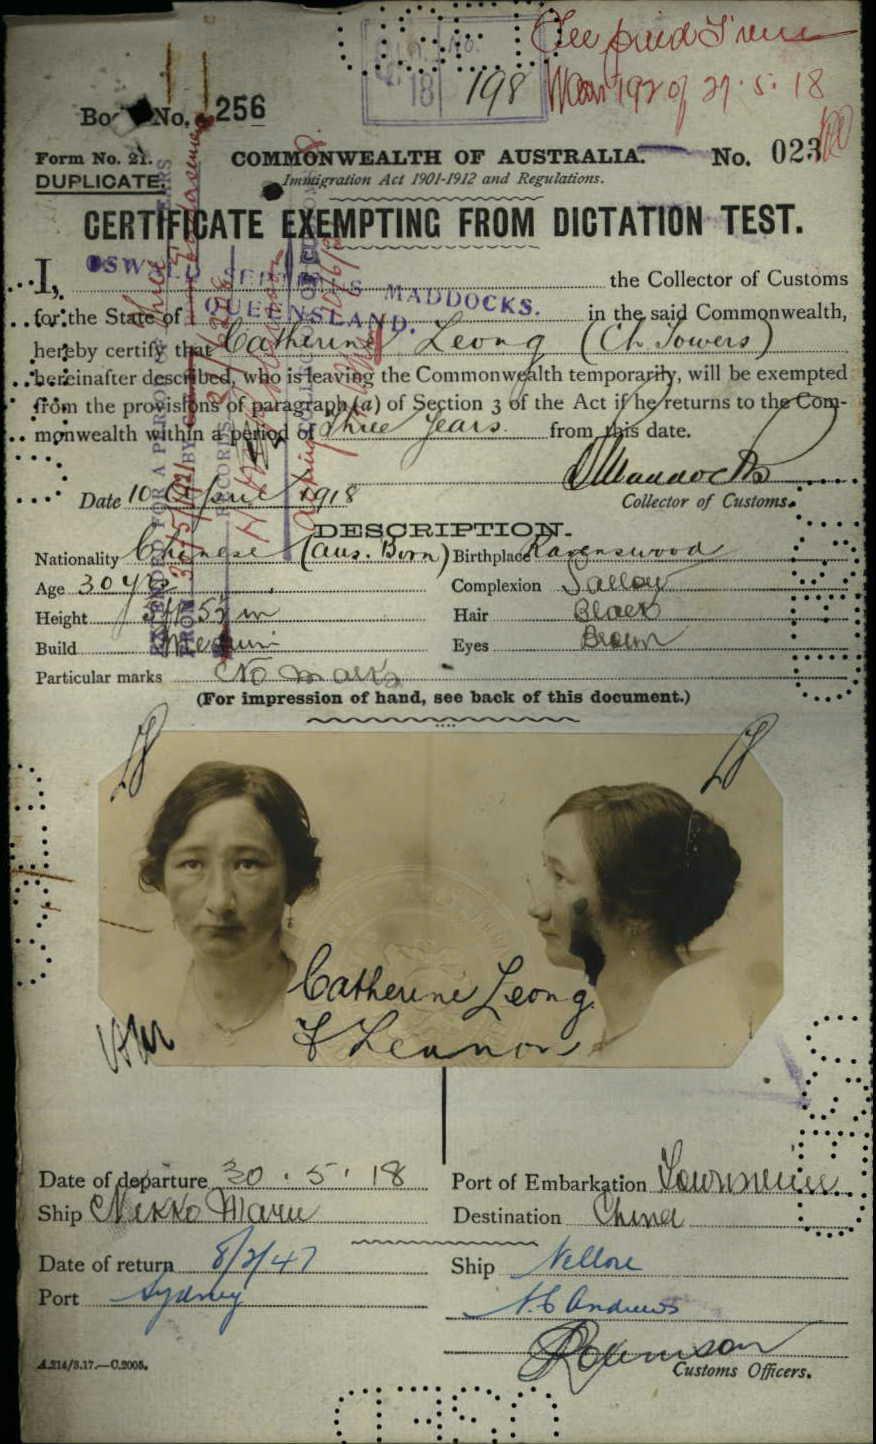 See paid Fine
198 Mar 192 of 27.5.18
Book No. 256
Form No. 21. COMMONWEALTH OF AUSTRALIA. No. 023
DUPLICATE. Immigration Act 1901-1912 and Regulations.
CERTIFICATE EXEMPTING FROM DICTATION TEST.
I, MADDOCKS. the Collector of Customs
for the State of QUEENSLAND. in the said Commonwealth,
hereby certify that Catherine Leong (Ch. Towers)
hereinafter described, who is leaving the Commonwealth temporarily, will be exempted
from the provisions of paragraph (a) of Section 3 of the Act if he returns to the Com-
monwealth within a period of Three Years. from this date.
Maddocks
Date 10 April 1918 Collector of Customs.
DESCRIPTION.
Nationality Chinese (Aus. Born) Birthplace Ravenswood
Age 30 yrs Complexion Sallow
Height 5 in Hair Black
Build Medium Eyes Brown
Particular marks No marks
(For impression of hand, see back of this document.)
Catherine Leong
Date of departure 30.5.18 Port of Embarkation Townsville
Ship Nikko Maru Destination China
Date of return 8/2/47 Ship Nellore
Port Sydney N.C Andrews
A.214/3.17.—C.2005. Customs Officers.